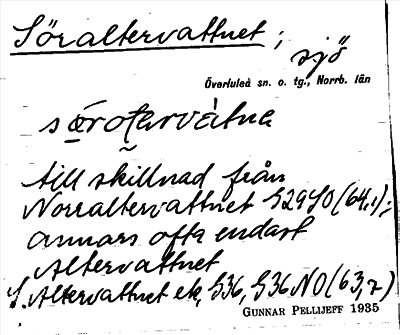 Söraltervattnet;
sjö
Överluleå sn. o. tg., Norrb. län
till skillnad från
Norraltervattnet G29SO (64,1);
annars ofta endast
Altervattnet
Altervattnet etc, G36, G36NO (63,2)
GUNNAR PELLIJEFF 1935